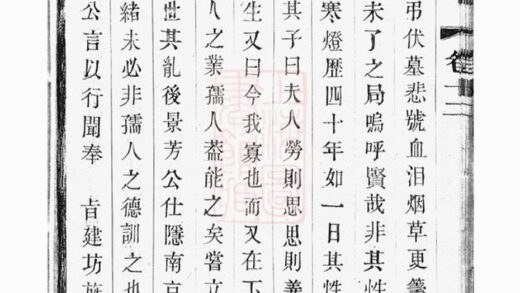 卷十二
弔伏墓悲號血泪烟草更籌
未了之局嗚呼賢哉非其性
寒燈歷四十年如一日其性
其子曰夫人勞則思思則義
生又曰今我寡也而又在下
人之業孺人葢能之矣嘗立
世其亂後景芳公仕隱南京
緒未必非孺人之德訓之也
公言以行聞奉 旨建坊旌